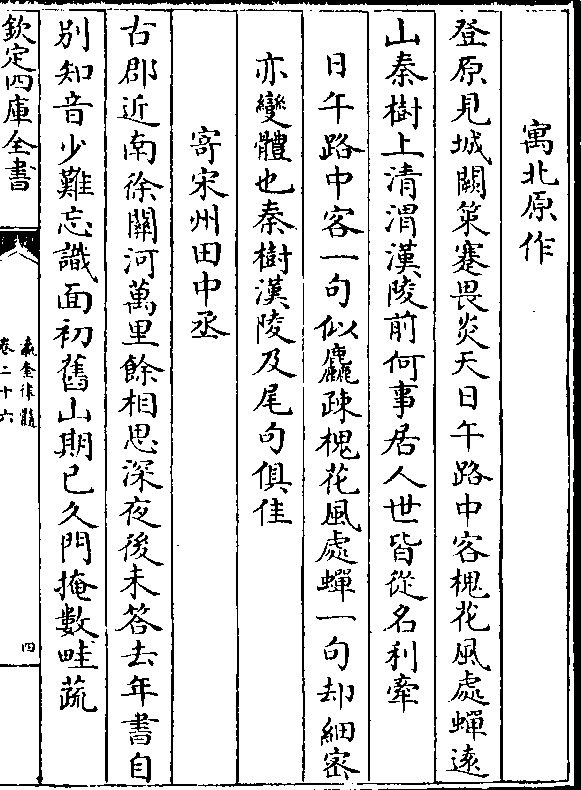 寓北原作
登原見城闕策蹇畏炎天日午路中客槐花風處蟬遠
山秦樹上清渭漢陵前何事居人世皆從名利牽
日午路中客一句似麤疎槐花風處蟬一句却細宻
亦變體也秦樹漢陵及尾句俱佳
寄宋州田中丞
古郡近南徐關河萬里餘相思深夜後未答去年書自
别知音少難忘識面初舊山期已久門掩數畦蔬
欽定四庫全書
瀛奎律髓
卷二十六
四